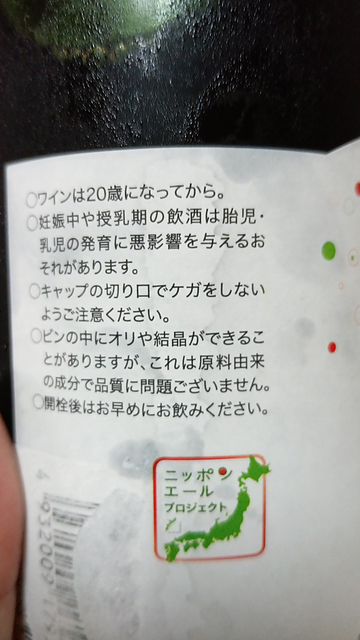 ○ワインは20歳になってから。
○妊娠中や授乳期の飲酒は胎児・
乳児の発育に悪影響を与えるお
それがあります。
○キャップの切り口でケガをしない
ようご注意ください。
○ビンの中にオリや結晶ができるこ
とがありますが、これは原料由来
の成分で品質に問題ございません。
○開栓後はお早めにお飲みください。
ニッポン
エール
プロジェクト
4 932009